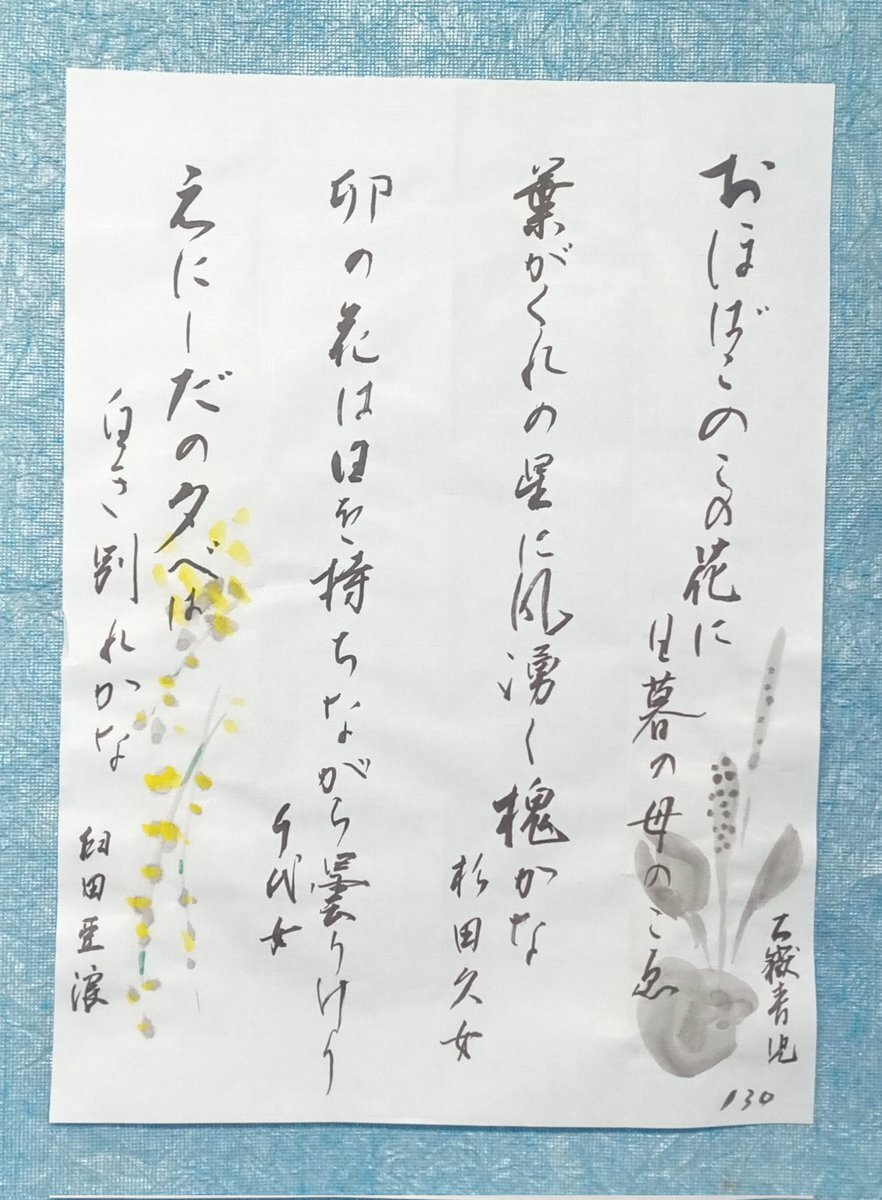 おほばこのこの花に
日暮の母のこゑ
大嶽青児
葉がくれの星に風湧く槐かな
杉田久女
卯の花は日を持ちながら曇りけり
千代女
えにしだの夕べは
白き別れかな
臼田亜浪
130